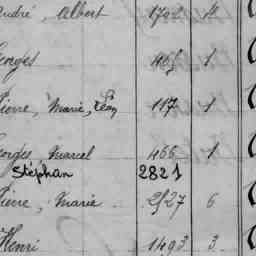 André, Albert 1702
Georges 405 1
Pierre, Marie, Léon 117 1
Georges, Marcel 466 1
Stéphan 2821
Pierre, Marie 2527 6
Henri 1493 3